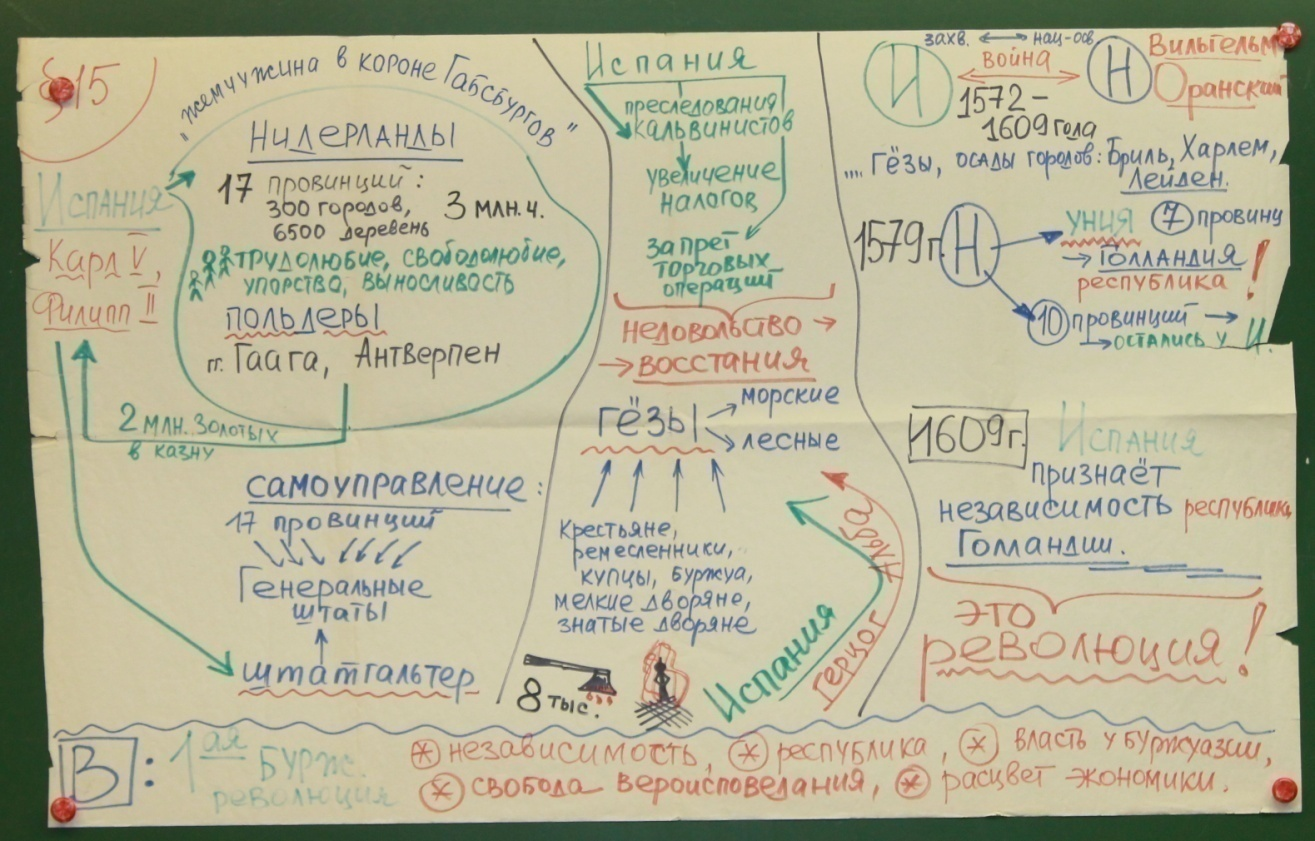 §15
„жемчужина в короне Габсбургов"
Нидерланды
17 провинций:
300 городов,
6500 деревень
3 млн.ч.
трудолюбие, свободолюбие,
упорства, выносливасть
польдеры
гг. Гаага, Антверпен
Испания
Карл V,
Филипп II
2 млн. золотых
в казну
самоуправление:
17 провинций
Генеральные
штаты
штатгальтер
Испания
преследования
кальвинистов
увеличение
налогов
запрет
торговых
операций
недовольство →
→ восстания
гёзы
морские
лесные
Крестьяне,
ремесленники,
купцы, буржуа,
мелкие дворяне,
знатые дворяне
8 тыс.
Испания
герцог Альба
захв. ↔ нац-осв
И война Н
Вильгельм
Оранский
1572 –
1609 года
.... Гёзы, осады городов: Бриль, Харлем,
Лейден.
1579 г. Н
уния 7 провинц
→ Голландия
республика !
10 провинций →
→ остались у И.
1609 г. Испания
признаёт
независимость республики
Голландии.
это
революция!
В: 1ая
бурж.
революция
* независимость, * республика, * власть у буржуазии,
* свобода вероисповедания, * расцвет экономики.